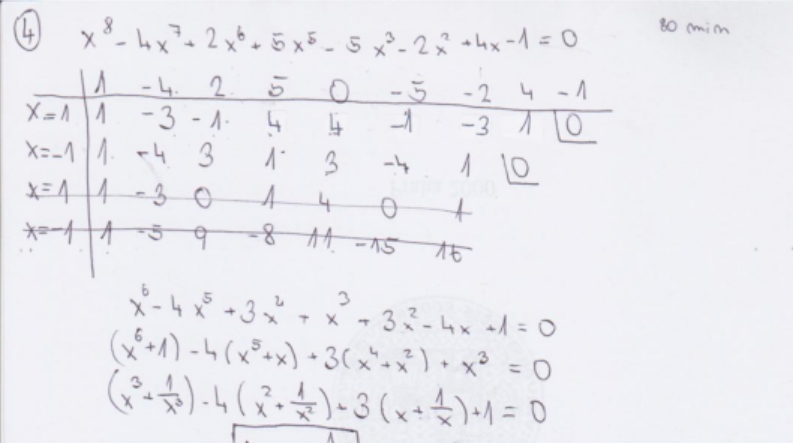 ④ x⁸ - 4x⁷ + 2x⁶ + 5x⁵ - 5x³ - 2x² + 4x - 1 = 0 80 min
1 -4 2 5 0 -5 -2 4 -1
x=1 1 -3 -1 4 4 -1 -3 1 0
x=-1 1 -4 3 1 3 -4 1 0
x=1 1 -3 0 1 4 0 1
x=-1 1 -5 9 -8 11 -15 16
x⁶ - 4x⁵ + 3x² + x³ + 3x² - 4x + 1 = 0
(x⁶+1) - 4(x⁵+x) + 3(x⁴+x²) + x³ = 0
(x³ + 1/x³) - 4(x² + 1/x²) + 3(x + 1/x) + 1 = 0